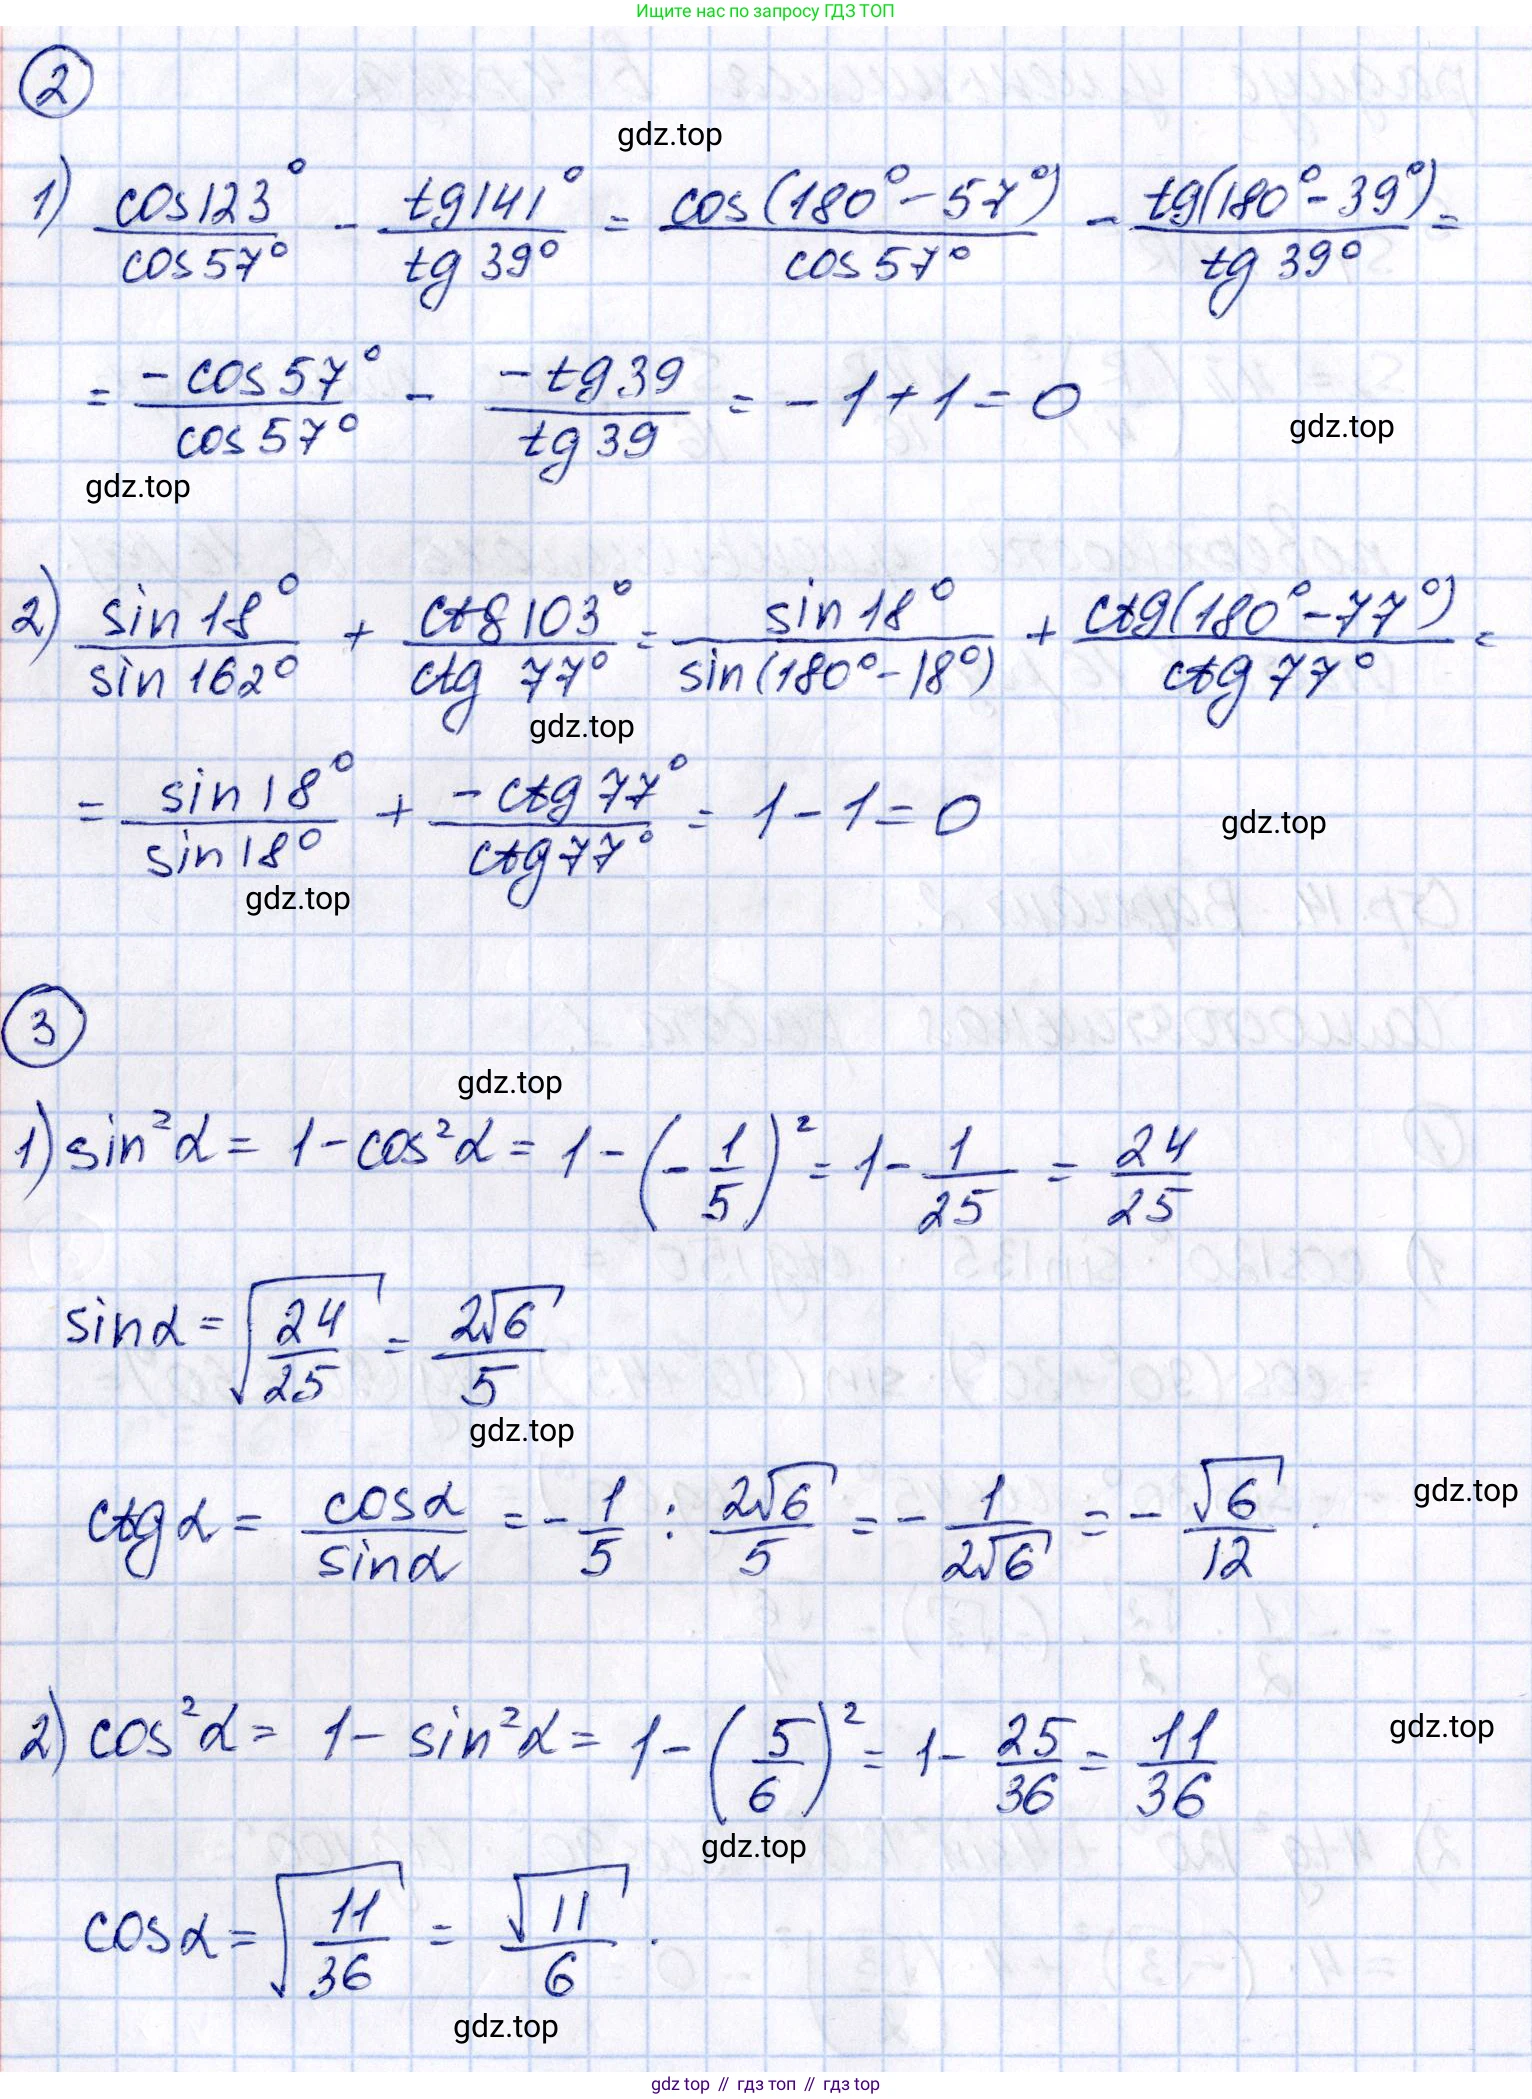 Ищите нас по запросу ГДЗ ТОП
2
gdz.top
1) cos123°/cos57° - tg141°/tg39° = cos(180°-57°)/cos57° - tg(180°-39°)/tg39° =
= -cos57°/cos57° - -tg39/tg39 = -1+1=0
gdz.top
gdz.top
2) sin18°/sin162° + ctg103°/ctg77° = sin18°/sin(180°-18°) + ctg(180°-77°)/ctg77° =
gdz.top
= sin18°/sin18° + -ctg77°/ctg77° = 1-1=0
gdz.top
gdz.top
3
gdz.top
1) sin²α = 1-cos²α = 1-(-1/5)² = 1-1/25 = 24/25
sinα = √(24/25) = 2√6/5
gdz.top
ctgα = cosα/sinα = -1/5 : 2√6/5 = -1/2√6 = -√6/12.
gdz.top
2) cos²α = 1-sin²α = 1-(5/6)² = 1-25/36 = 11/36
gdz.top
gdz.top
cosα = √(11/36) = √11/6.
gdz.top
gdz top // гдз топ // гдз top